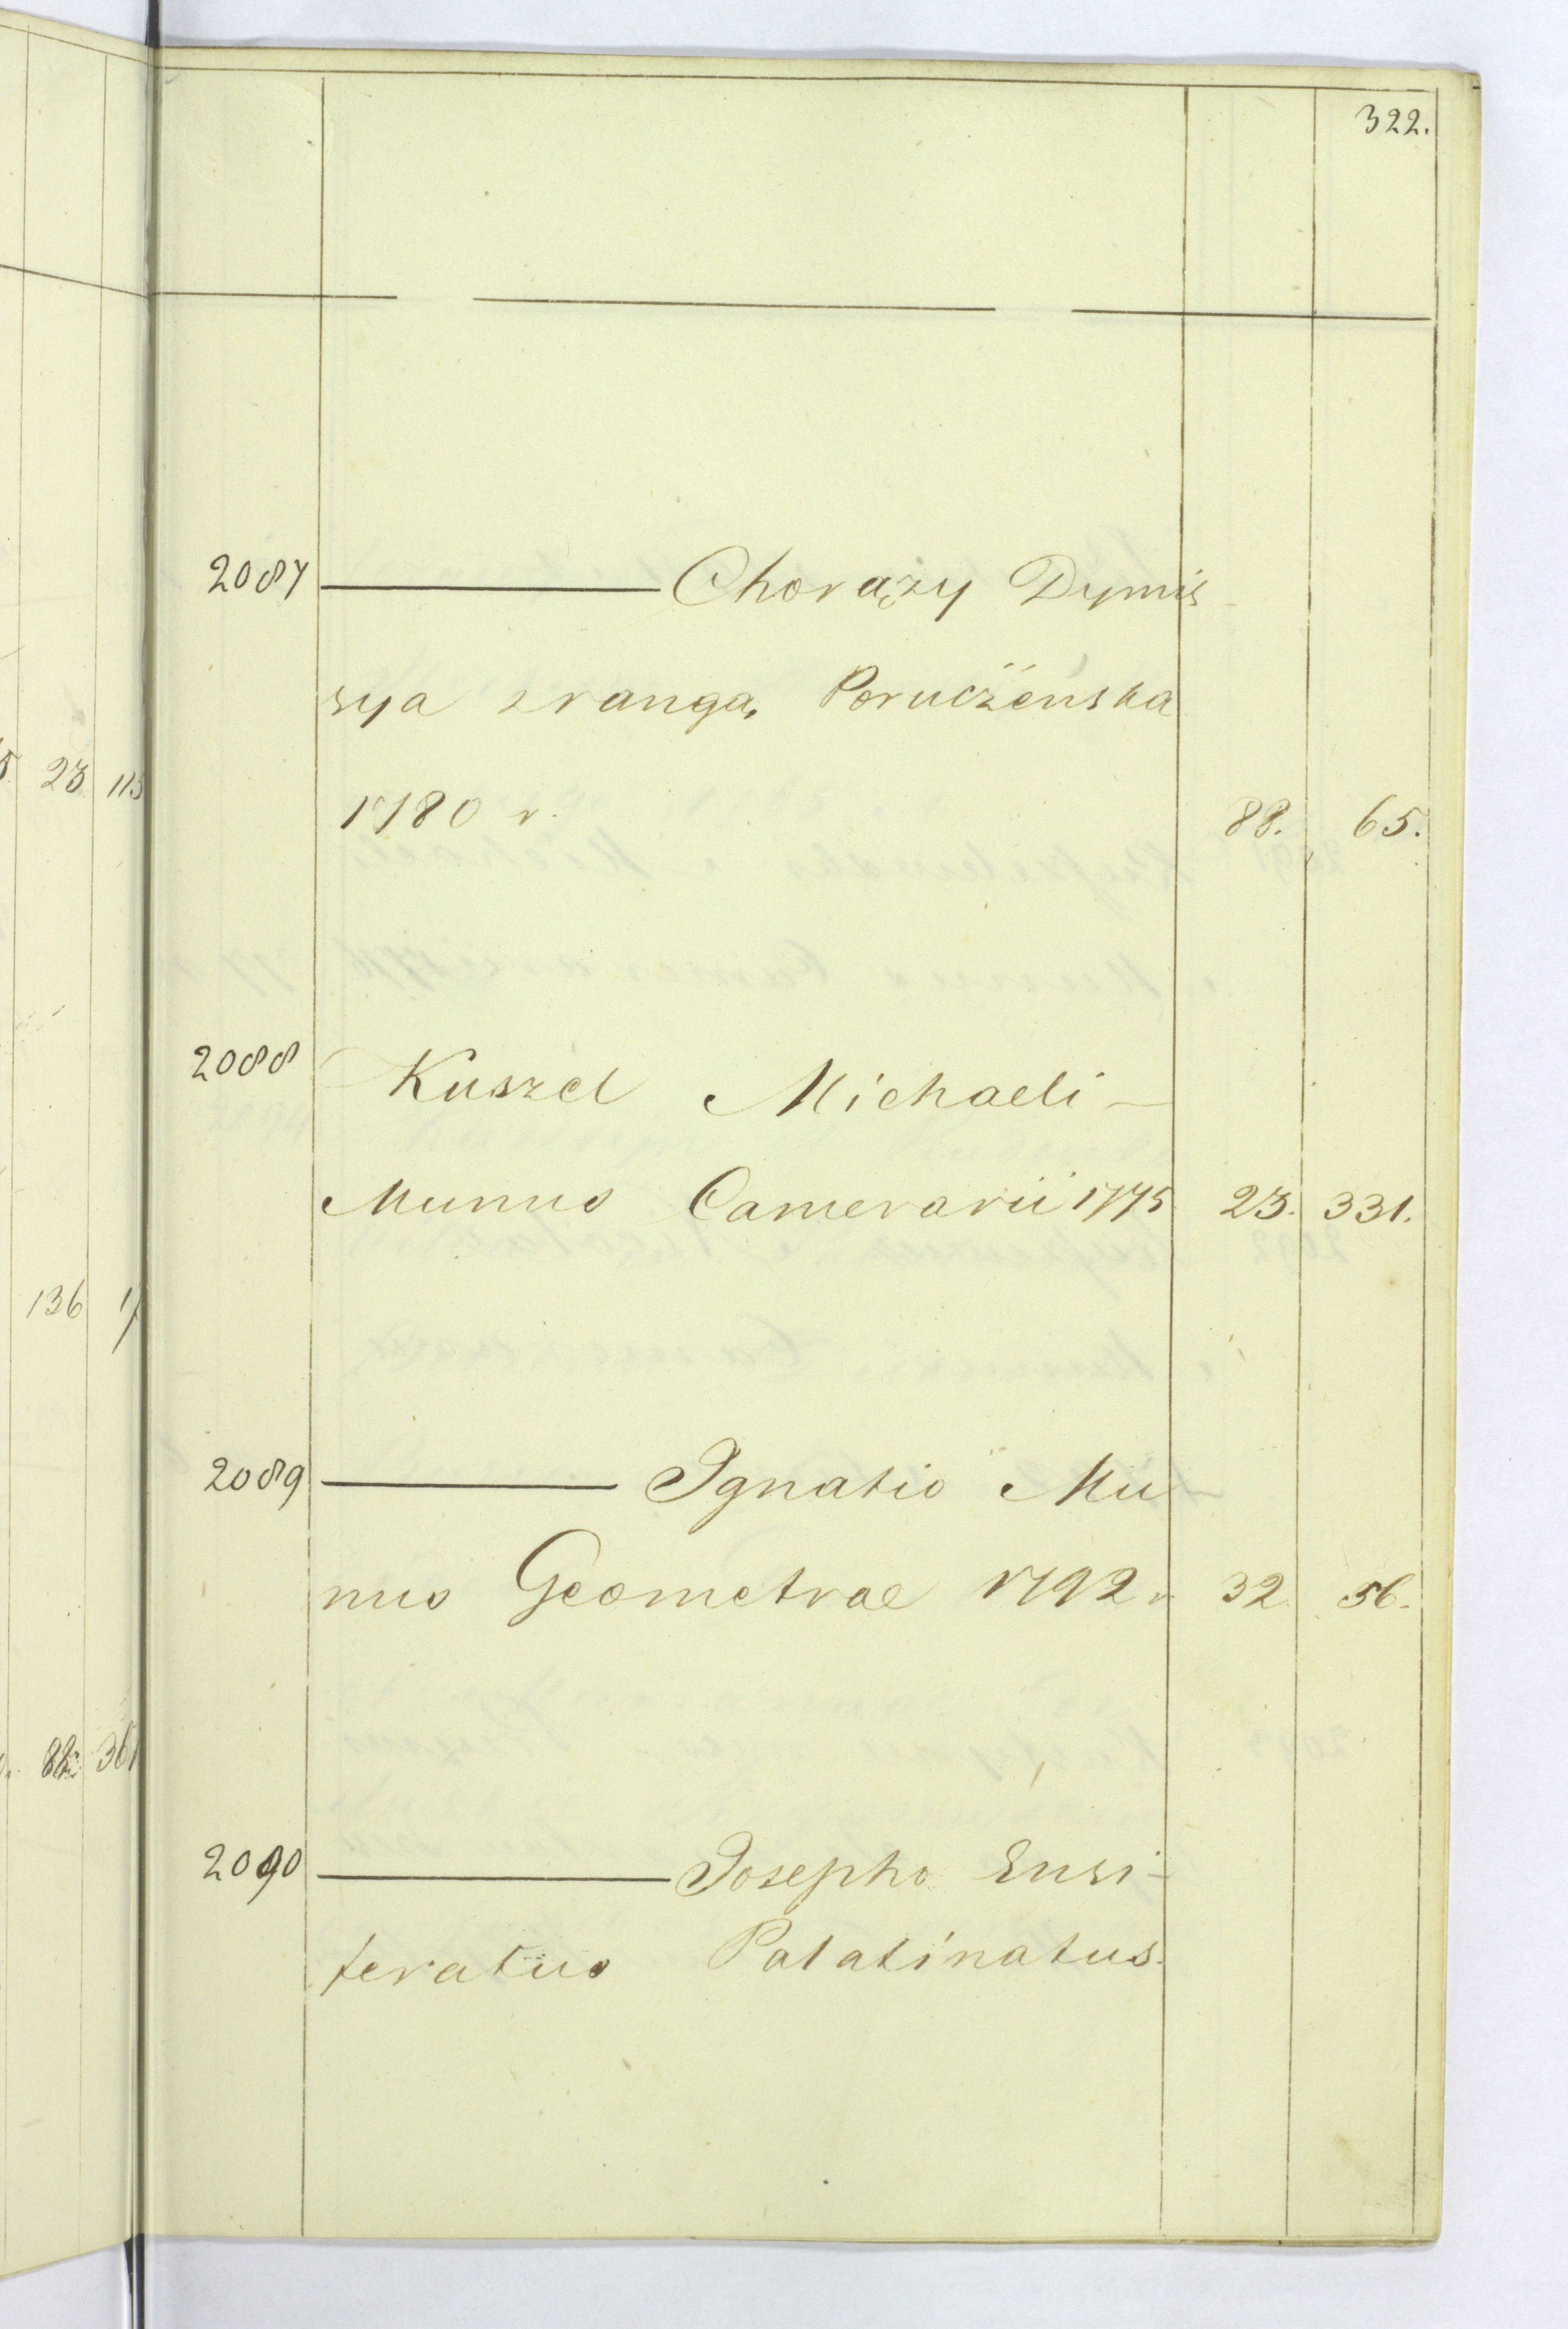 322.
2087 ——— Chorąży Dymis
sya z rangą Poruczeńska
1780 r. 88. 65.
2088 Kuszel Michaeli —
Munus Camerarii 1775 23. 331.
2089 ——— Ignatio Mu
nus Geometrae 1792 r 32 56.
2090 ——— Josepho Ensi-
feratus Palatinatus.
23 115
136 17
88. 361